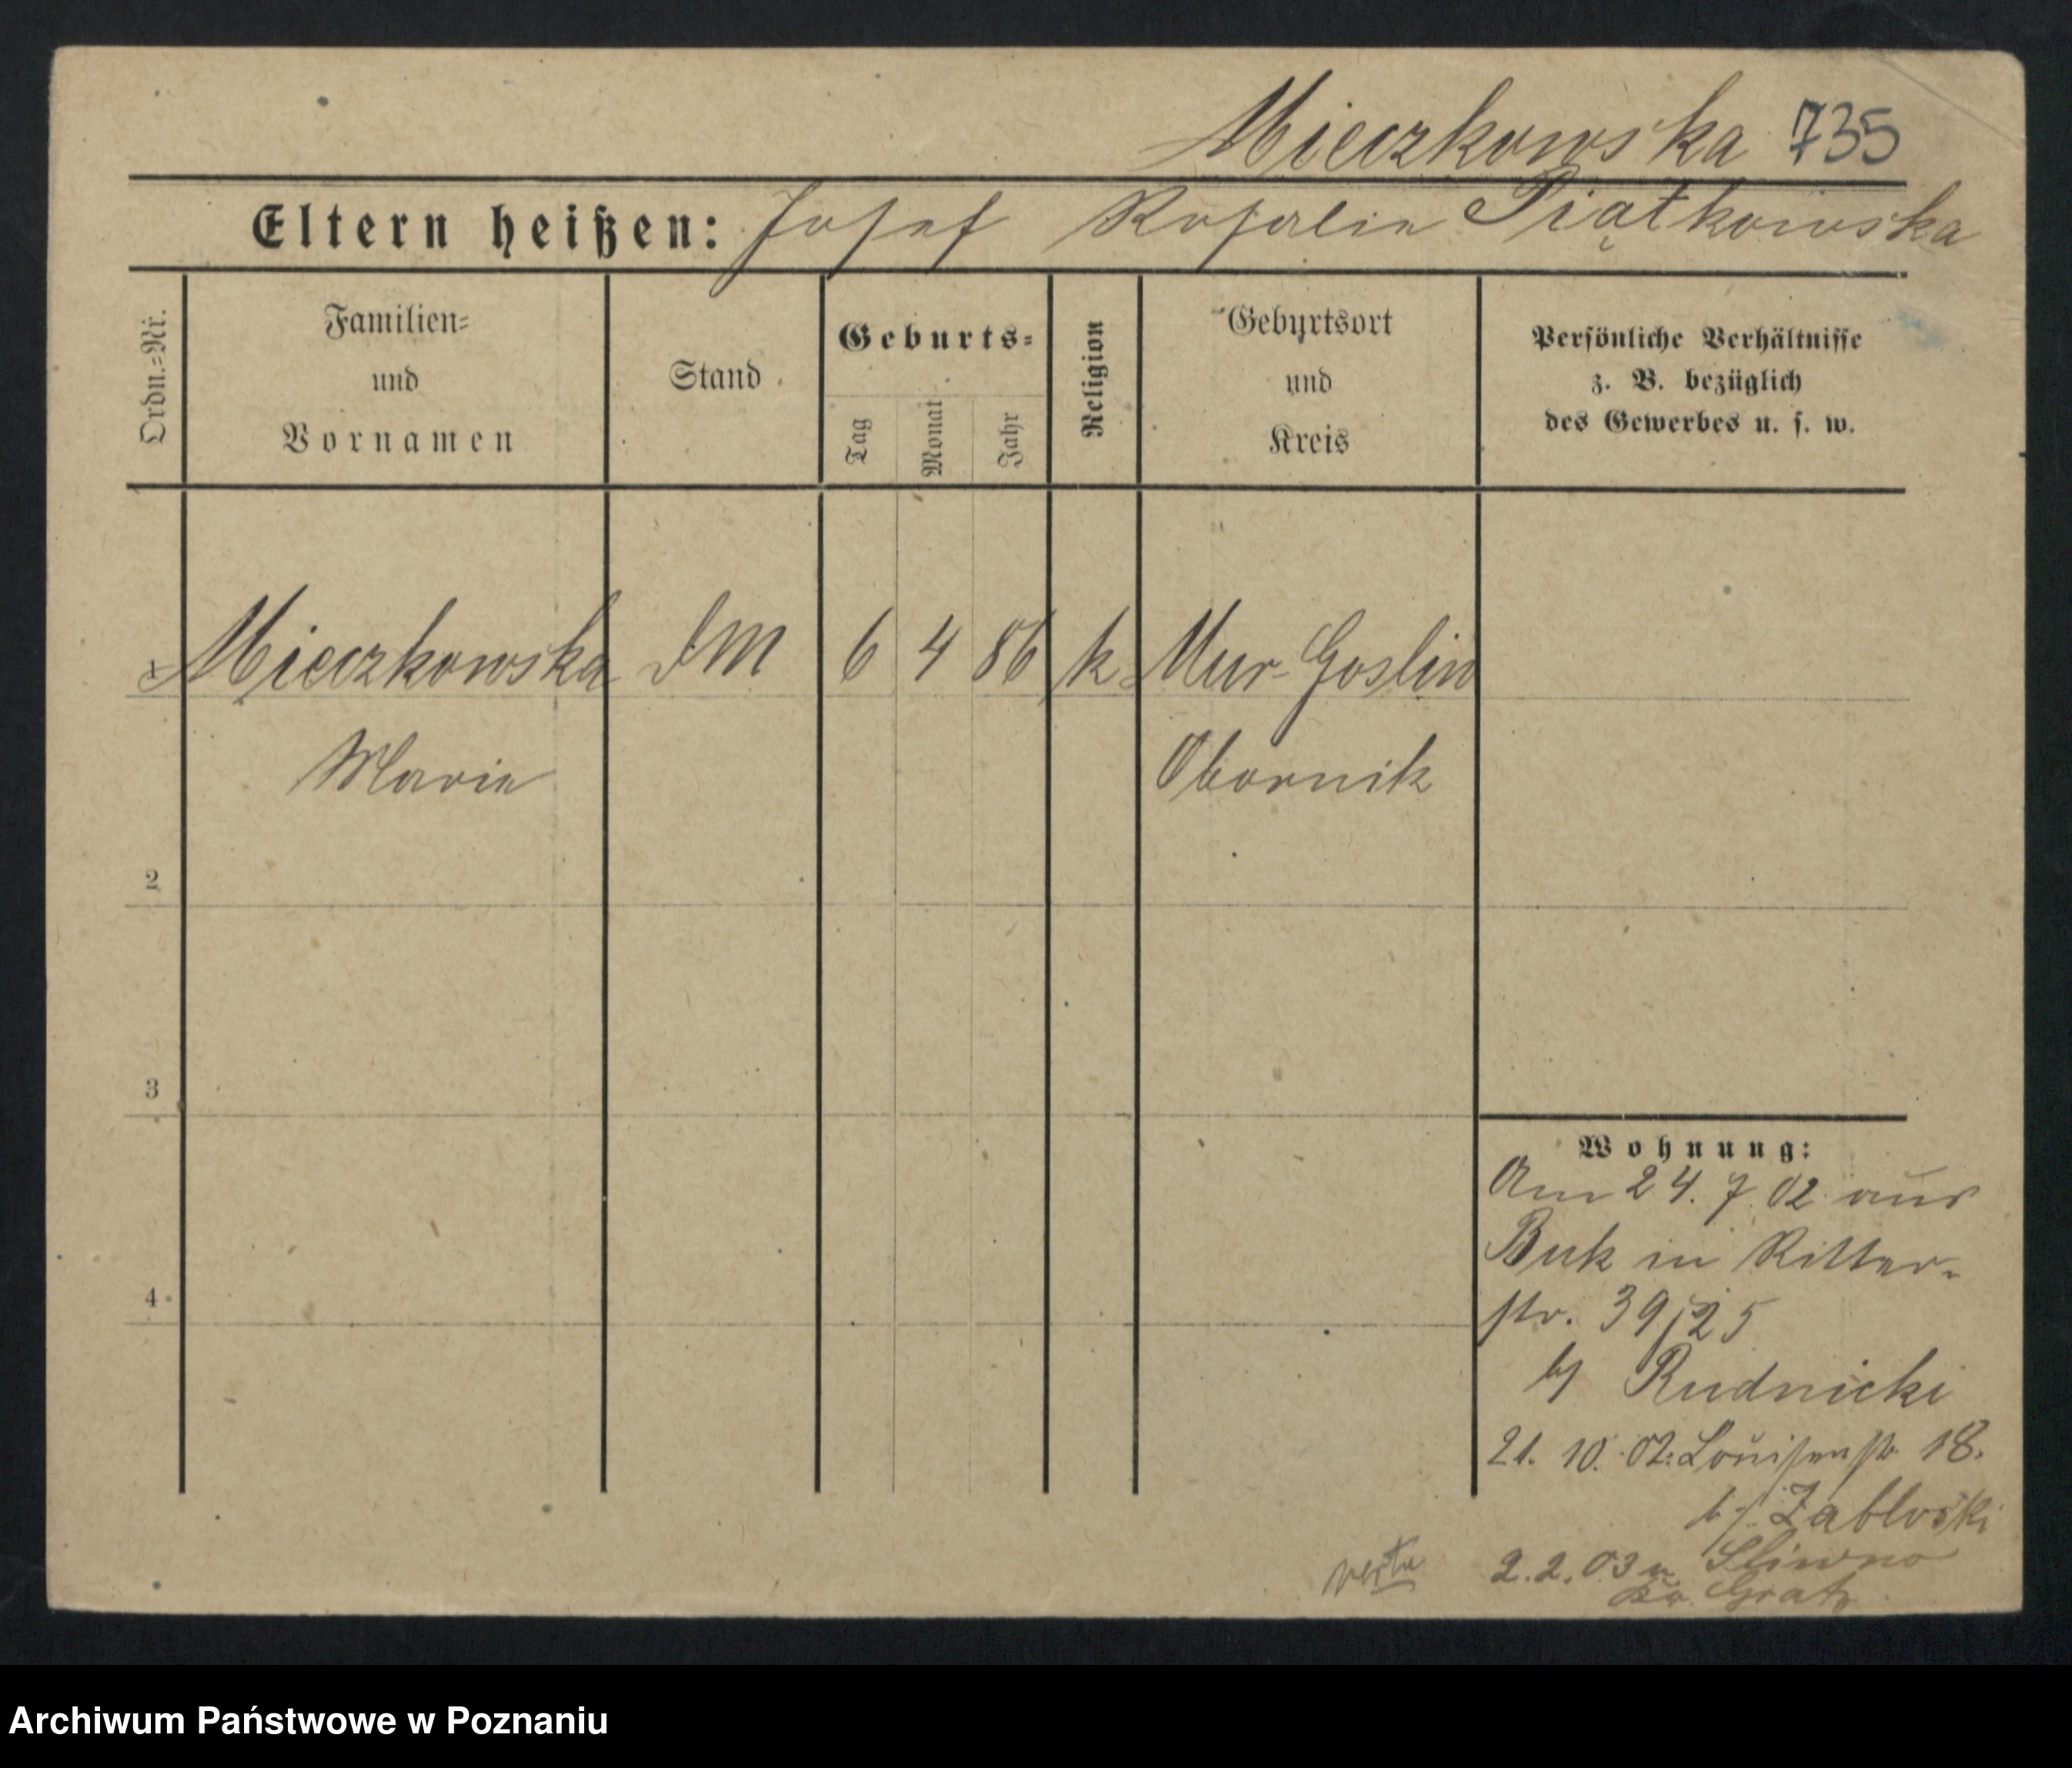 Mieczkowska 735
Eltern heißen: Josef Rosalie Piątkowska
Ordn.=Nr.
Familien=
und
Vornamen
Stand
Geburts=
Tag
Monat
Jahr
Religion
Geburtsort
und
Kreis
Persönliche Verhältnisse
z. B. bezüglich
des Gewerbes u. s. w.
1 Mieczkowska DM 6 4 86 k Mur-Goslin
Marie Obornik
2
3
4
Wohnung:
Am 24.7.02 aus
Buk in Ritter-
str. 39/25
b/ Rudnicki
21. 10. 02. Louisenstr. 18.
b/ Zabloski
2.2.03 n. Sliwno
Kr. Gratz
verte
Archiwum Państwowe w Poznaniu